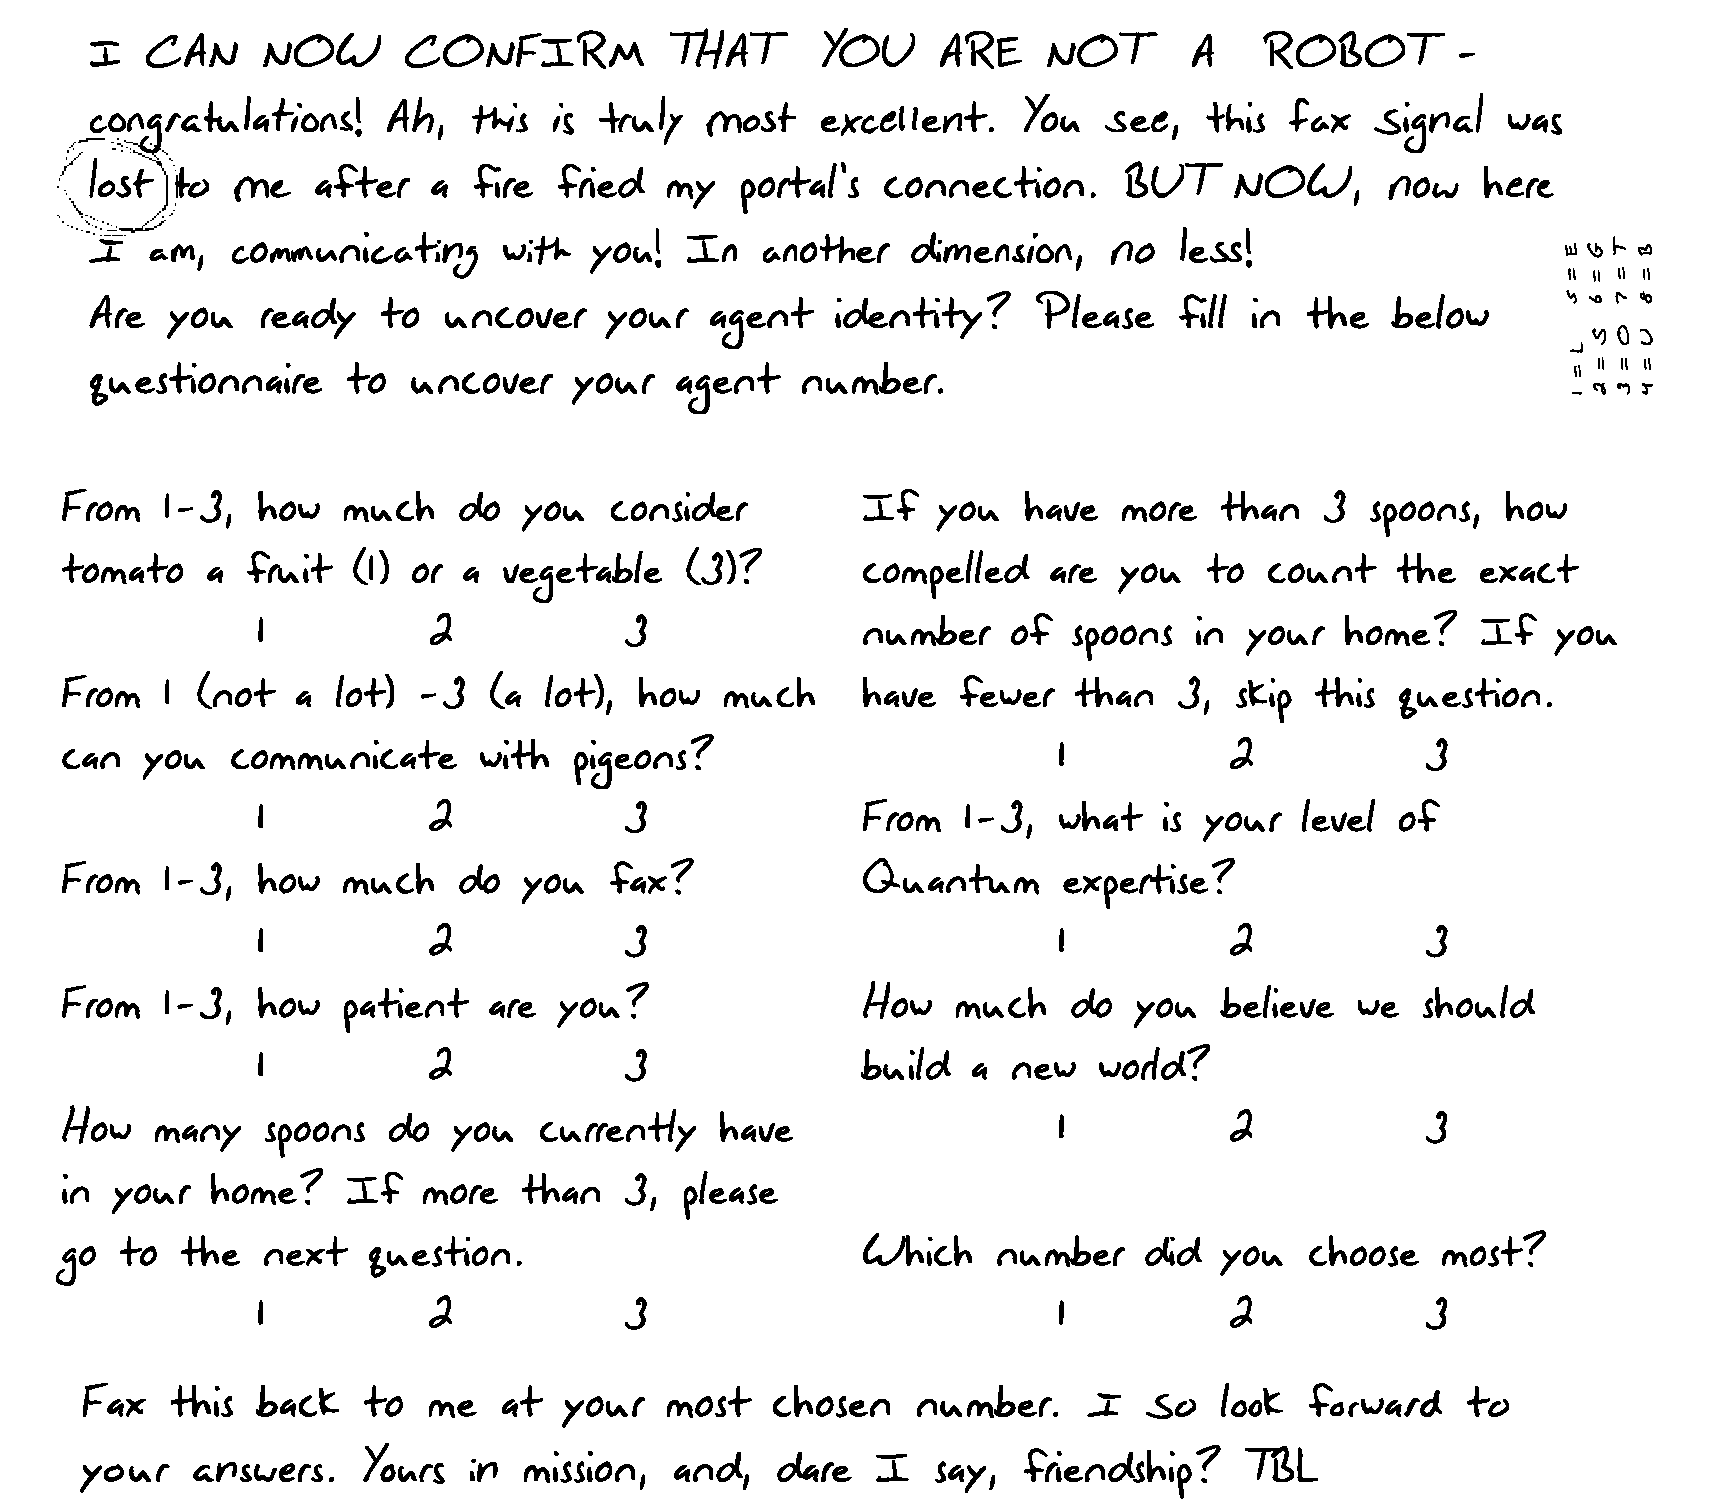 I CAN NOW CONFIRM THAT YOU ARE NOT A ROBOT -
congratulations! Ah, this is truly most excellent. You see, this fax signal was
lost to me after a fire fried my portal's connection. BUT NOW, now here
I am, communicating with you! In another dimension, no less!
Are you ready to uncover your agent identity? Please fill in the below
questionnaire to uncover your agent number.
1 = L 5 = E
2 = S 6 = G
3 = O 7 = T
4 = U 8 = B
From 1-3, how much do you consider
tomato a fruit (1) or a vegetable (3)?
1 2 3
From 1 (not a lot) -3 (a lot), how much
can you communicate with pigeons?
1 2 3
From 1-3, how much do you fax?
1 2 3
From 1-3, how patient are you?
1 2 3
How many spoons do you currently have
in your home? If more than 3, please
go to the next question.
1 2 3
If you have more than 3 spoons, how
compelled are you to count the exact
number of spoons in your home? If you
have fewer than 3, skip this question.
1 2 3
From 1-3, what is your level of
Quantum expertise?
1 2 3
How much do you believe we should
build a new world?
1 2 3
Which number did you choose most?
1 2 3
Fax this back to me at your most chosen number. I so look forward to
your answers. Yours in mission, and, dare I say, friendship? TBL